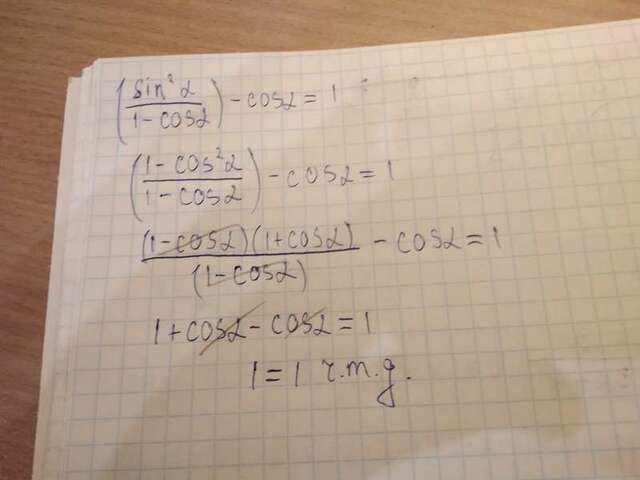 (sin²α / 1 - cosα) - cosα = 1
(1 - cos²α / 1 - cosα) - cosα = 1
(1 - cosα)(1 + cosα) / (1 - cosα) - cosα = 1
1 + cosα - cosα = 1
1 = 1 г.т.g.